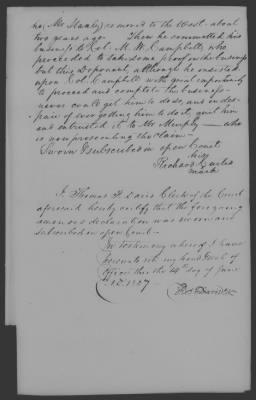 he, Mr. Stanley removed to the West about
two years ago. Then he committed his
business to Col. M. W. Campbell, who
proceeded to take some proof in the business
but this Deponent, although he insisted
upon Col. Campbell with great importunity
to proceed and complete the business
never could get him to do so, and in des-
pair of ever getting him to do it, quit him
and entrusted it to Mr. Murphy — who
is now prosecuting the claim —
Sworn & subscribed in open Court
his
Richard
mark
I Thomas H. Davis Clerk of the Court
aforesaid hereby certify that the foregoing
amendus declaration was sworn and
subscribed in open Court —
In testimony whereof I have
hereunto set my hand & seal of
Office this the 14th day of June
A.D. 1837